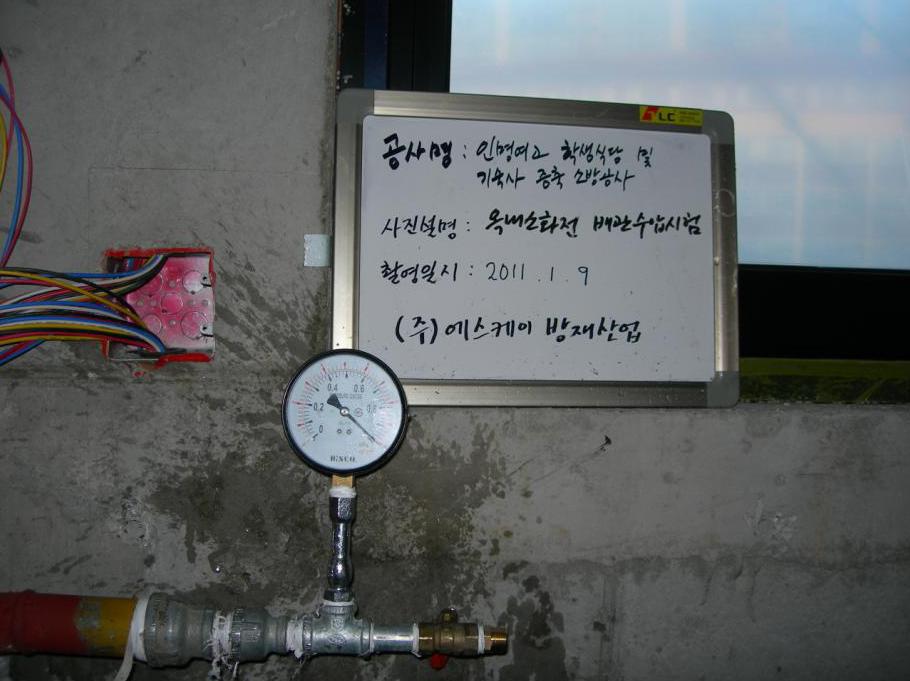 LC
공사명 : 인명여고 학생식당 및
기숙사 증축 소방공사
사진설명 : 옥내소화전 배관수압시험
촬영일시 : 2011 . 1 . 9
(주)에스케이 방재산업
0.4 0.6
0.2 0.8
0
HISCO